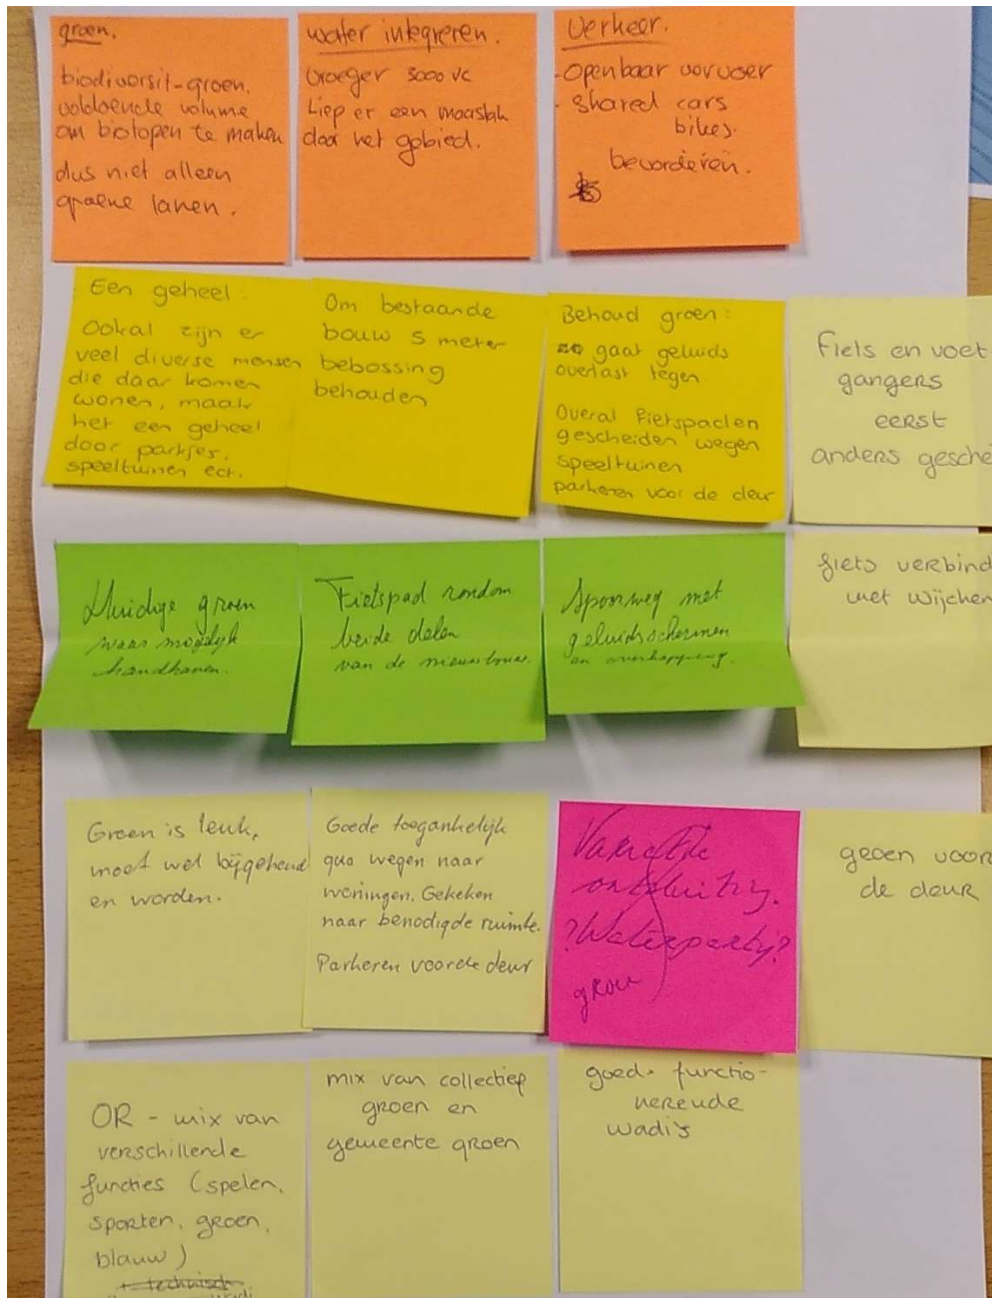 groen.
biodiversit-groen.
voldoende volume
om biotopen te maken
dus niet alleen
groene lanen.
water integreren.
Vroeger 3000 vc
Liep er een maastak
door het gebied.
Verkeer.
- Openbaar vervoer
- Shared cars
bikes.
bevorderen.
Een geheel:
Ookal zijn er
veel diverse mensen
die daar komen
wonen, maak
het een geheel
door parkjes,
speeltuinen ect.
Om bestaande
bouw 5 meter
bebossing
behouden
Behoud groen:
gaat geluids
overlast tegen
Overal Fietspaden
gescheiden wegen
speeltuinen
parkeren voor de deur
Fiets en voet
gangers
eerst
anders gesche
Huidige groen
waar mogelijk
handhaven.
Fietspad rondom
beide delen
van de nieuwbouw.
Spoorweg met
geluidsschermen
en overkapping.
fiets verbind
met Wijchen
Groen is leuk,
moet wel bijgehoud
en worden.
Goede toegankelijk
qua wegen naar
woningen. Gekeken
naar benodigde ruimte.
Parkeren voor de deur
ontsluiting.
?Waterpartij?
groen
groen voor
de deur
OR - mix van
verschillende
functies (spelen,
sporten, groen,
blauw)
+ technisch
wadi
mix van collectief
groen en
gemeente groen
goed functio-
nerende
wadi's